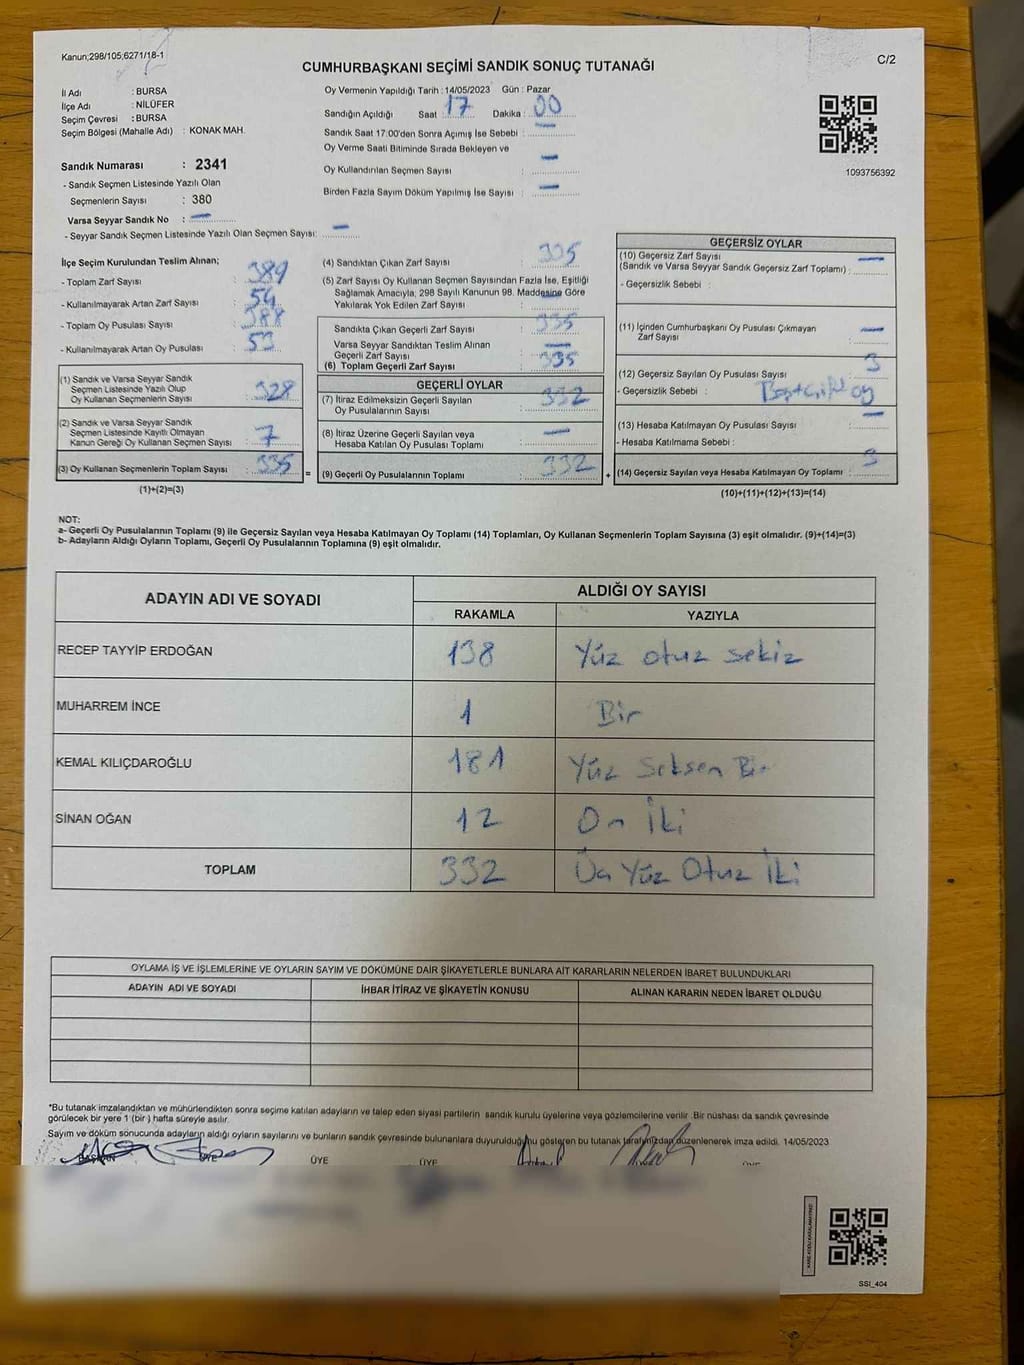 Kanun;298/105;6271/18-1
C/2
CUMHURBAŞKANI SEÇİMİ SANDIK SONUÇ TUTANAĞI
İl Adı : BURSA
İlçe Adı : NİLÜFER
Seçim Çevresi : BURSA
Seçim Bölgesi (Mahalle Adı) : KONAK MAH.
Sandık Numarası : 2341
- Sandık Seçmen Listesinde Yazılı Olan
Seçmenlerin Sayısı : 380
Varsa Seyyar Sandık No : —
- Seyyar Sandık Seçmen Listesinde Yazılı Olan Seçmen Sayısı: —
Oy Vermenin Yapıldığı Tarih : 14/05/2023 Gün : Pazar
Sandığın Açıldığı Saat : 17 Dakika : 00
Sandık Saat 17:00'den Sonra Açımış İse Sebebi : —
Oy Verme Saati Bitiminde Sırada Bekleyen ve
Oy Kullandırılan Seçmen Sayısı : —
Birden Fazla Sayım Döküm Yapılmış İse Sayısı : —
1093756392
İlçe Seçim Kurulundan Teslim Alınan;
- Toplam Zarf Sayısı : 389
- Kullanılmayarak Artan Zarf Sayısı : 54
- Toplam Oy Pusulası Sayısı : 388
- Kullanılmayarak Artan Oy Pusulası : 53
(1) Sandık ve Varsa Seyyar Sandık
Seçmen Listesinde Yazılı Olup
Oy Kullanan Seçmenlerin Sayısı : 328
(2) Sandık ve Varsa Seyyar Sandık
Seçmen Listesinde Kayıtlı Olmayan
Kanun Gereği Oy Kullanan Seçmen Sayısı : 7
(3) Oy Kullanan Seçmenlerin Toplam Sayısı : 335
(1)+(2)=(3)
(4) Sandıktan Çıkan Zarf Sayısı : 335
(5) Zarf Sayısı Oy Kullanan Seçmen Sayısından Fazla İse, Eşitliği
Sağlamak Amacıyla; 298 Sayılı Kanunun 98. Maddesine Göre
Yakılarak Yok Edilen Zarf Sayısı : —
Sandıkta Çıkan Geçerli Zarf Sayısı : 335
Varsa Seyyar Sandıktan Teslim Alınan
Geçerli Zarf Sayısı : —
(6) Toplam Geçerli Zarf Sayısı : 335
GEÇERLİ OYLAR
(7) İtiraz Edilmeksizin Geçerli Sayılan
Oy Pusulalarının Sayısı : 332
(8) İtiraz Üzerine Geçerli Sayılan veya
Hesaba Katılan Oy Pusulası Toplamı : —
(9) Geçerli Oy Pusulalarının Toplamı : 332
GEÇERSİZ OYLAR
(10) Geçersiz Zarf Sayısı
(Sandık ve Varsa Seyyar Sandık Geçersiz Zarf Toplamı) : —
- Geçersizlik Sebebi :
(11) İçinden Cumhurbaşkanı Oy Pusulası Çıkmayan
Zarf Sayısı : —
(12) Geçersiz Sayılan Oy Pusulası Sayısı : 3
- Geçersizlik Sebebi : oy
(13) Hesaba Katılmayan Oy Pusulası Sayısı : —
- Hesaba Katılmama Sebebi :
(14) Geçersiz Sayılan veya Hesaba Katılmayan Oy Toplamı : 3
(10)+(11)+(12)+(13)=(14)
NOT:
a- Geçerli Oy Pusulalarının Toplamı (9) ile Geçersiz Sayılan veya Hesaba Katılmayan Oy Toplamı (14) Toplamları, Oy Kullanan Seçmenlerin Toplam Sayısına (3) eşit olmalıdır. (9)+(14)=(3)
b- Adayların Aldığı Oyların Toplamı, Geçerli Oy Pusulalarının Toplamına (9) eşit olmalıdır.
ADAYIN ADI VE SOYADI ALDIĞI OY SAYISI
RAKAMLA YAZIYLA
RECEP TAYYİP ERDOĞAN 138 Yüz otuz sekiz
MUHARREM İNCE 1 Bir
KEMAL KILIÇDAROĞLU 181 Yüz Seksen Bir
SİNAN OĞAN 12 On İki
TOPLAM 332 Üç Yüz Otuz İki
OYLAMA İŞ VE İŞLEMLERİNE VE OYLARIN SAYIM VE DÖKÜMÜNE DAİR ŞİKAYETLERLE BUNLARA AİT KARARLARIN NELERDEN İBARET BULUNDUKLARI
ADAYIN ADI VE SOYADI İHBAR İTİRAZ VE ŞİKAYETİN KONUSU ALINAN KARARIN NEDEN İBARET OLDUĞU
*Bu tutanak imzalandıktan ve mühürlendikten sonra seçime katılan adayların ve talep eden siyasi partilerin sandık kurulu üyelerine veya gözlemcilerine verilir .Bir nüshası da sandık çevresinde
görülecek bir yere 1 (bir ) hafta süreyle asılır.
Sayım ve döküm sonucunda adayların aldığı oyların sayılarını ve bunların sandık çevresinde bulunanlara duyurulduğunu gösteren bu tutanak tarafımızdan düzenlenerek imza edildi. 14/05/2023
BAŞKAN ÜYE ÜYE ÜYE ÜYE
SSİ_404